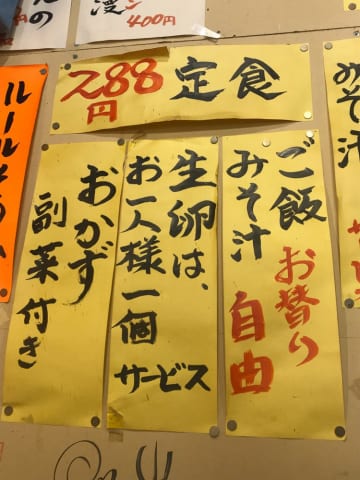 漫
400円
定食
288円
ご飯
みそ汁
お替り
自由
生卵は、
お一人様一個
サービス
おかず
副菜付き
みそ汁